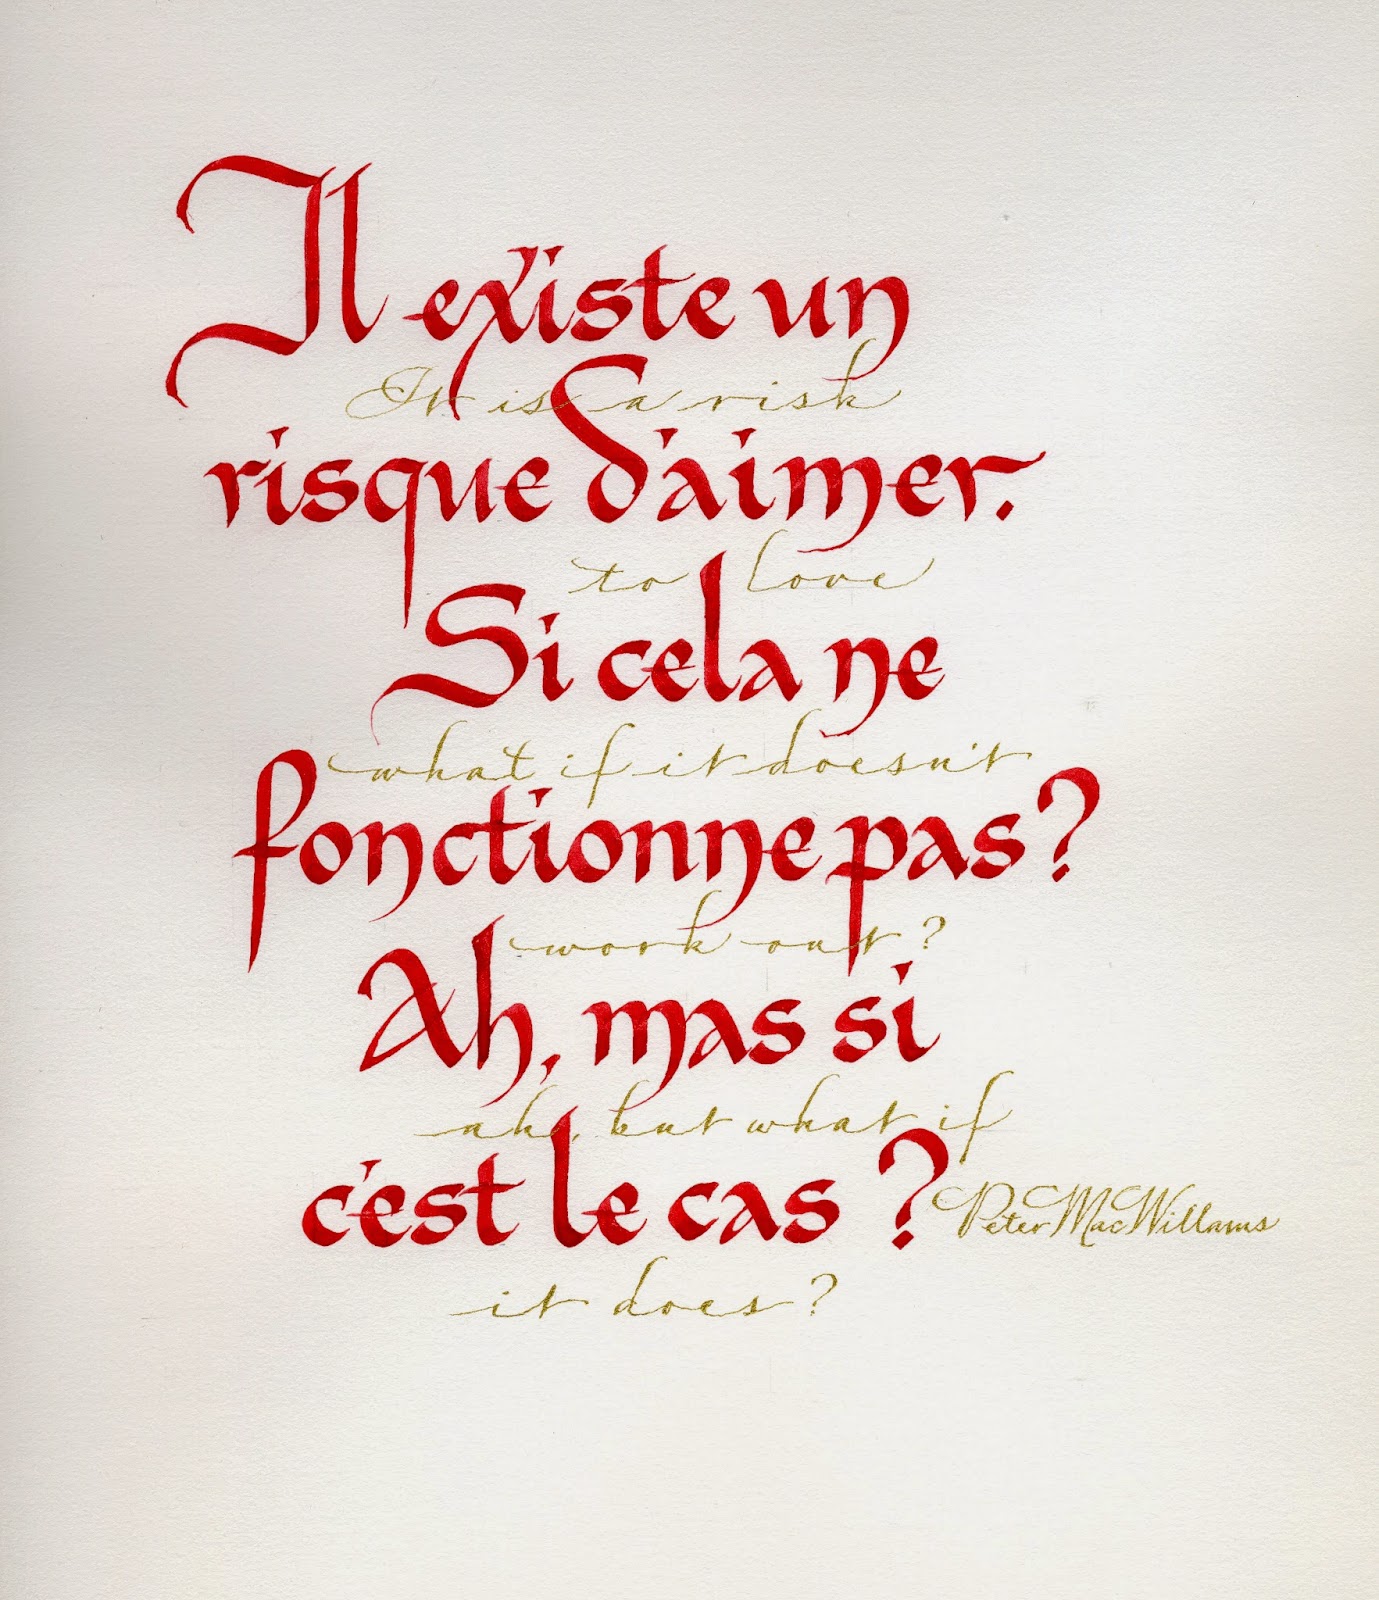 Il existe un
It is a risk
risque d'aimer.
to love
Si cela ne
what if it doesn't
fonctionne pas?
work out?
Ah, mas si
ah, but what if
c'est le cas ?
Peter MacWillams
it does?